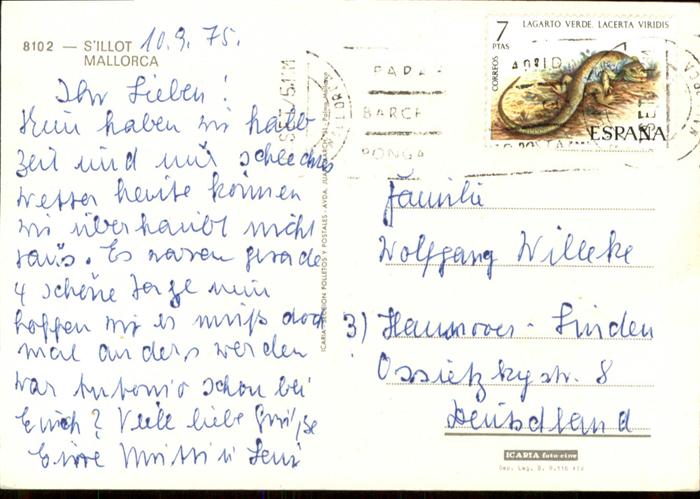 8102 — S'ILLOT
MALLORCA
10.9.75.
Ihr Lieben!
Nun haben wir halb
zeit und nur schlechtes
wetter heute können
wir überhaubt nicht
raus. Es waren gerade
4 schöne Tage nun
hoffen wir es muß doch
mal anders werden
war Antonio schon bei
Euch? Viele liebe Grüße
Eure Mutti u
7
PTAS
LAGARTO VERDE. LACERTA VIRIDIS
CORREOS
ESPAÑA
BARCE
PONGA
Familie
Wolfgang Willeke
3) Hannover - Linden
Ossietzkystr. 8
Deutschland
ICARIA foto-cine
Dep. Leg. B.